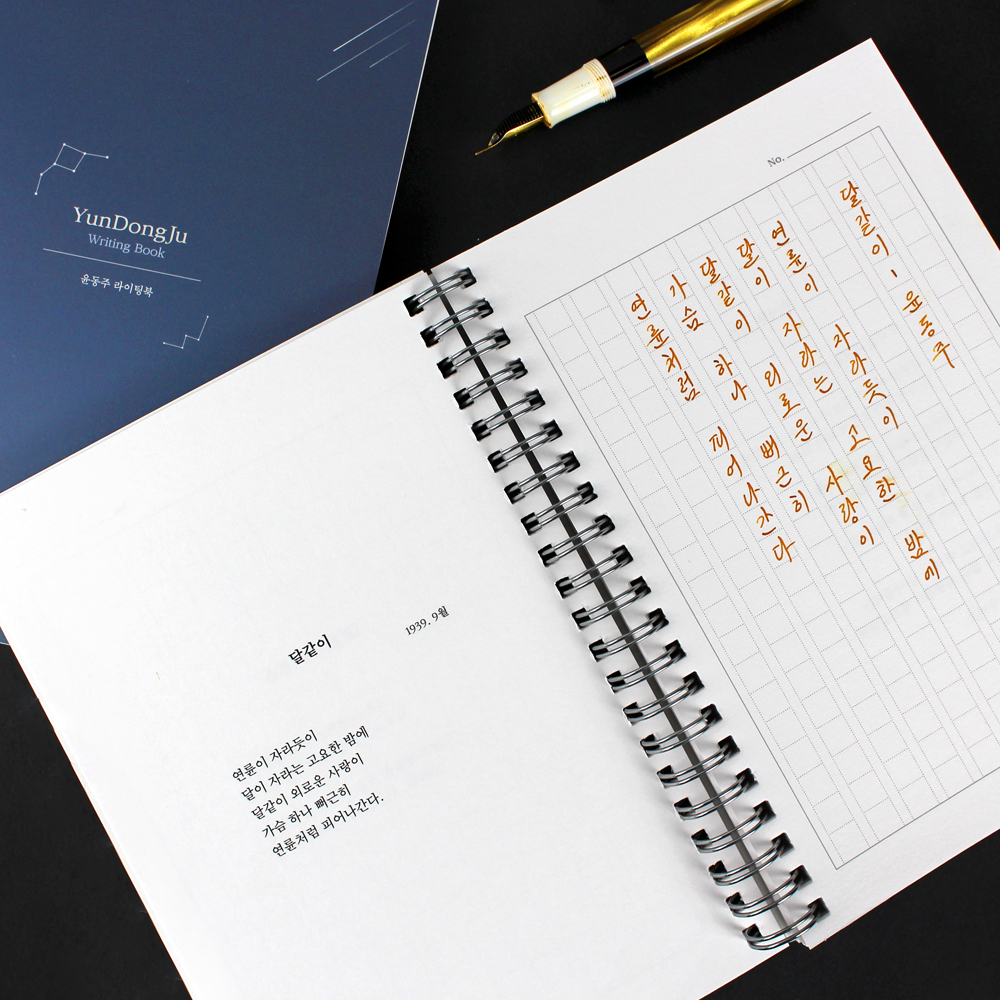 YunDongJu
Writing Book
윤동주 라이팅북
달같이
1939. 9월
연륜이 자라듯이
달이 자라는 고요한 밤에
달같이 외로운 사랑이
가슴 하나 뻐근히
연륜처럼 피어나간다.
No.
달같이 - 윤동주
연륜이 자라듯이
달이 자라는 고요한 밤에
달같이 외로운 사랑이
가슴 하나 뻐근히
연륜처럼 피어나간다